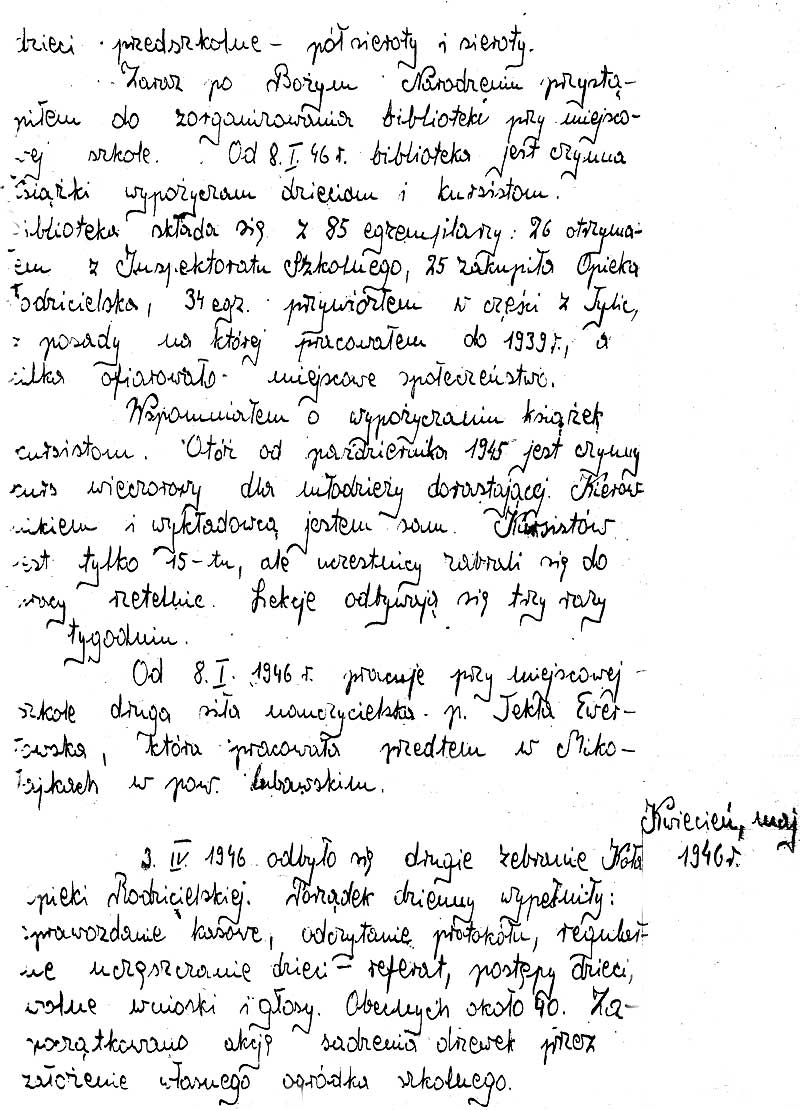 dzieci przedszkolne – półsieroty i sieroty.
Zaraz po Bożym Narodzeniu przystą-
piłem do zorganizowania biblioteki przy miejsco-
wej szkole. Od 8.I.46 r. biblioteka jest czynna
książki wypożyczam dzieciom i kursistom.
iblioteka składa się z 85 egzemplarzy: 26 otrzyma-
em z Inspektoratu Szkolnego, 25 zakupiła Opieka
Rodzicielska, 34 egz. przywiozłem w części z Tylic,
z posady na której pracowałem do 1939 r., a
kilka ofiarowało miejscowe społeczeństwo.
Wspomniałem o wypożyczaniu książek
kursistom. Otóż od października 1945 jest czynny
kurs wieczorowy dla młodzieży dorastającej. Kierow
nikiem i wykładowcą jestem sam. Kursistów
jest tylko 15-tu, ale uczestnicy zabrali się do
pracy rzetelnie. Lekcje odbywają się trzy razy
tygodniu.
Od 8.I.1946 r. pracuje przy miejscowej
szkole druga siła nauczycielska p. Tekla Ewer-
towska, która pracowała przedtem w Miko-
łajkach w pow. lubawskim.
Kwiecień, maj
1946 r.
3.IV.1946 odbyło się drugie zebranie Koła
pieki Rodzicielskiej. Porządek dzienny wypełniły:
sprawozdanie kasowe, odczytanie protokółu, regular-
ne uczęszczanie dzieci – referat, postępy dzieci,
wolne wnioski i głosy. Obecnych około 90. Za-
początkowano akcję sadzenia drzewek przez
założenie własnego ogródka szkolnego.